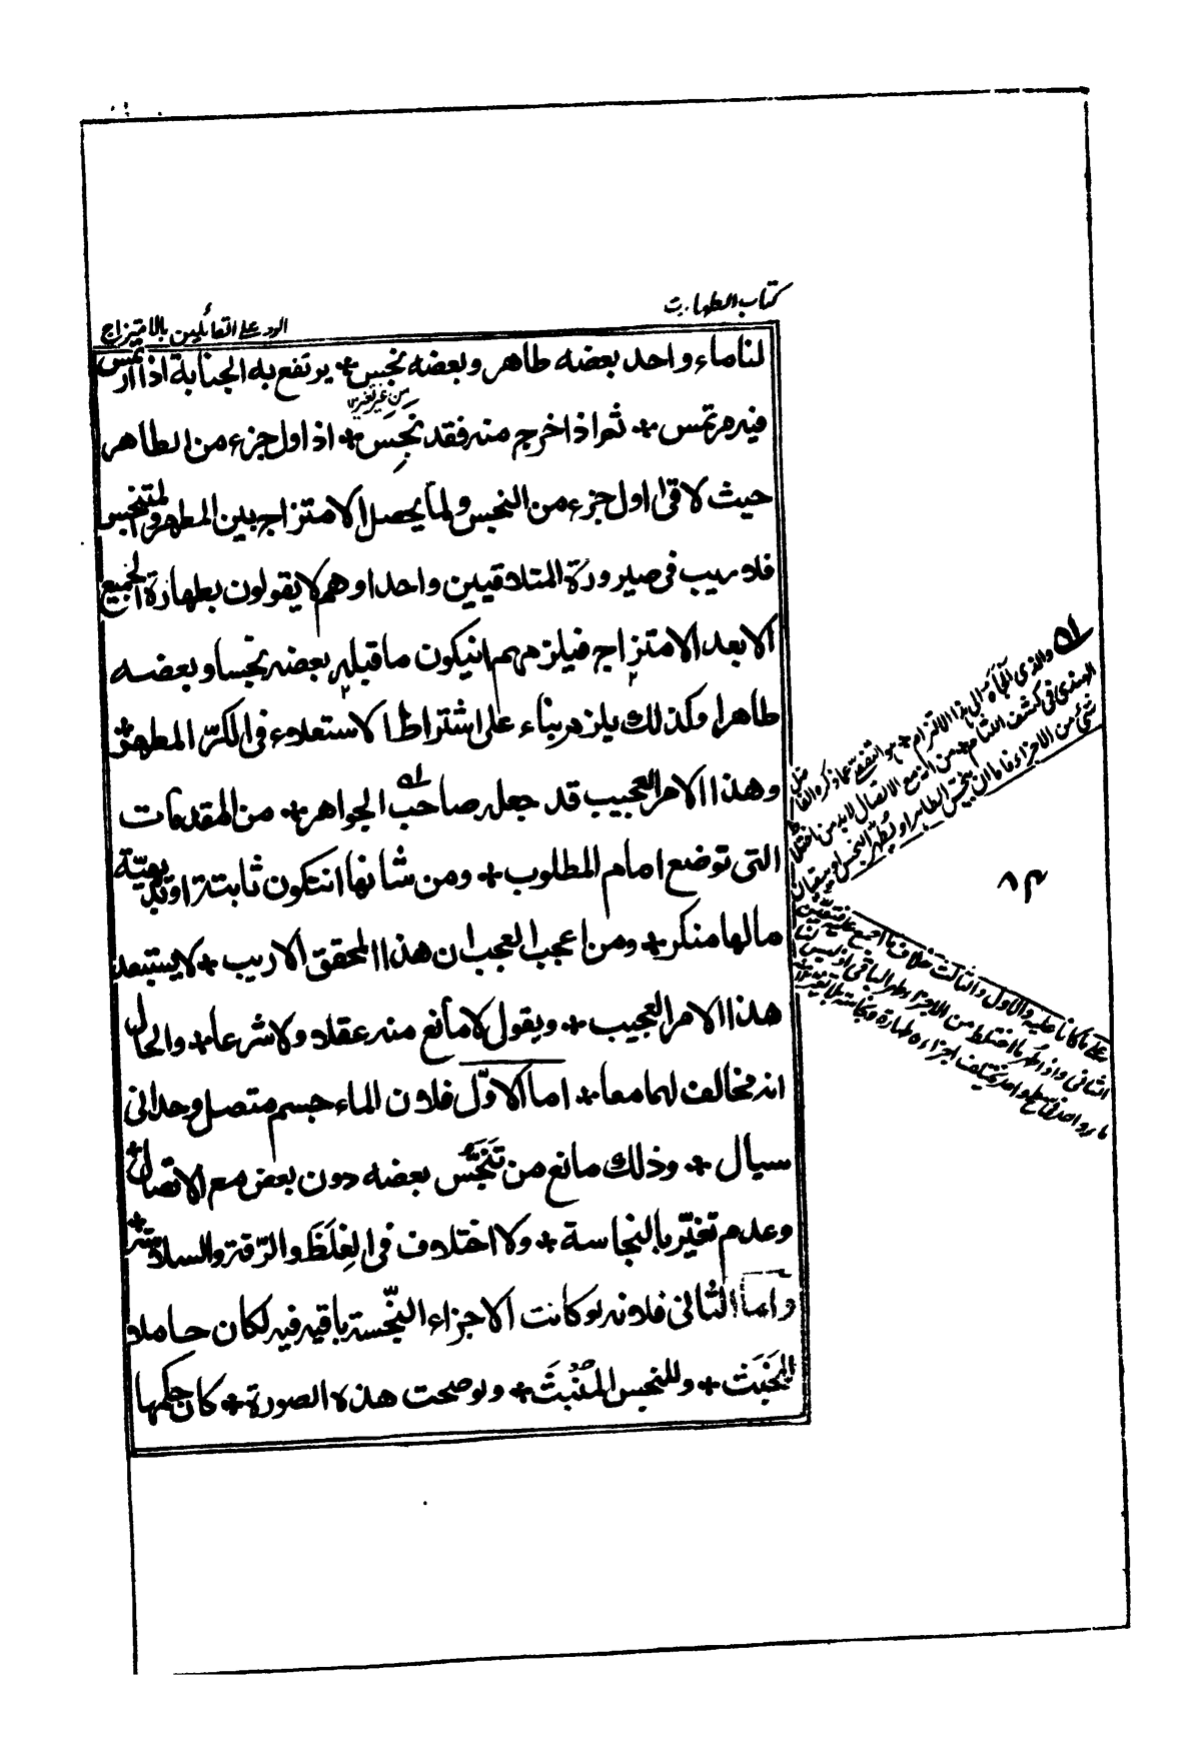 كتاب الطهارت
الرد على القائلين بالامتزاج
لنا ماء واحد بعضه طاهر وبعضه نجس + يرتفع به الجنابة اذا ارتمس
من غير تغير
فيه مرتمس + ثم اذا خرج منه فقد نجس + اذ اول جزء من الطاهر
حيث لاقى اول جزء من النجس ولما يحصل الامتزاج بين المطهر والمتنجس
فلا ريب في صيرورة المتلاقيين واحدا وهم لا يقولون بطهارة الجميع
الا بعد الامتزاج فيلزمهم انيكون ما قبله بعضه نجسا وبعضه
طاهرا وكذلك يلزم بناء على اشتراط الاستعلاء في الكرّ المطهر +
وهذا الامر العجيب قد جعله صاحب الجواهر + من المقدمات
التي توضع امام المطلوب + ومن شانها انتكون ثابتة او بديهيّة
مالها منكر + ومن اعجب العجب ان هذا المحقق الاريب + لا يستبعد
هذا الامر العجيب + ويقول لا مانع منه عقلا ولا شرعا + والحال
انه مخالف لهما معا + اما الاوّل فلان الماء جسم متصل وحداني
سيال + وذلك مانع من تَنَجُّس بعضه دون بعض مع الاتصال +
وعدم تغيّر بالنجاسة + ولا اختلاف في الغِلَظ والرّقة والسلاسة +
واما الثاني فلانه لو كانت الاجزاء النّجسة باقيه فيه لكان حاملا
للخَبَث + وللنجس المُنْبَثّ + ولو صحت هذه الصورة + كان حكمها
والذي الجأه الى هذا الالتزام + هو التفصي عما ذكره الفاضل
الهندي في كشف اللثام + من انه مع الاتصال لا بد من اختلاط
شيء من الاجزاء فاما ان ينجس الطاهر او يُطهّر النجس او يبقيان
على ما كانا عليه والاول والثالث خلاف ما اجمع عليه فتعين
الثاني واذا طهر ما اختلط من الاجزاء طهر الباقي اذ ليس لنا
ماء واحد في سطح واحد يختلف اجزاءه طهارة ونجاسة بلا تغير
٨٣